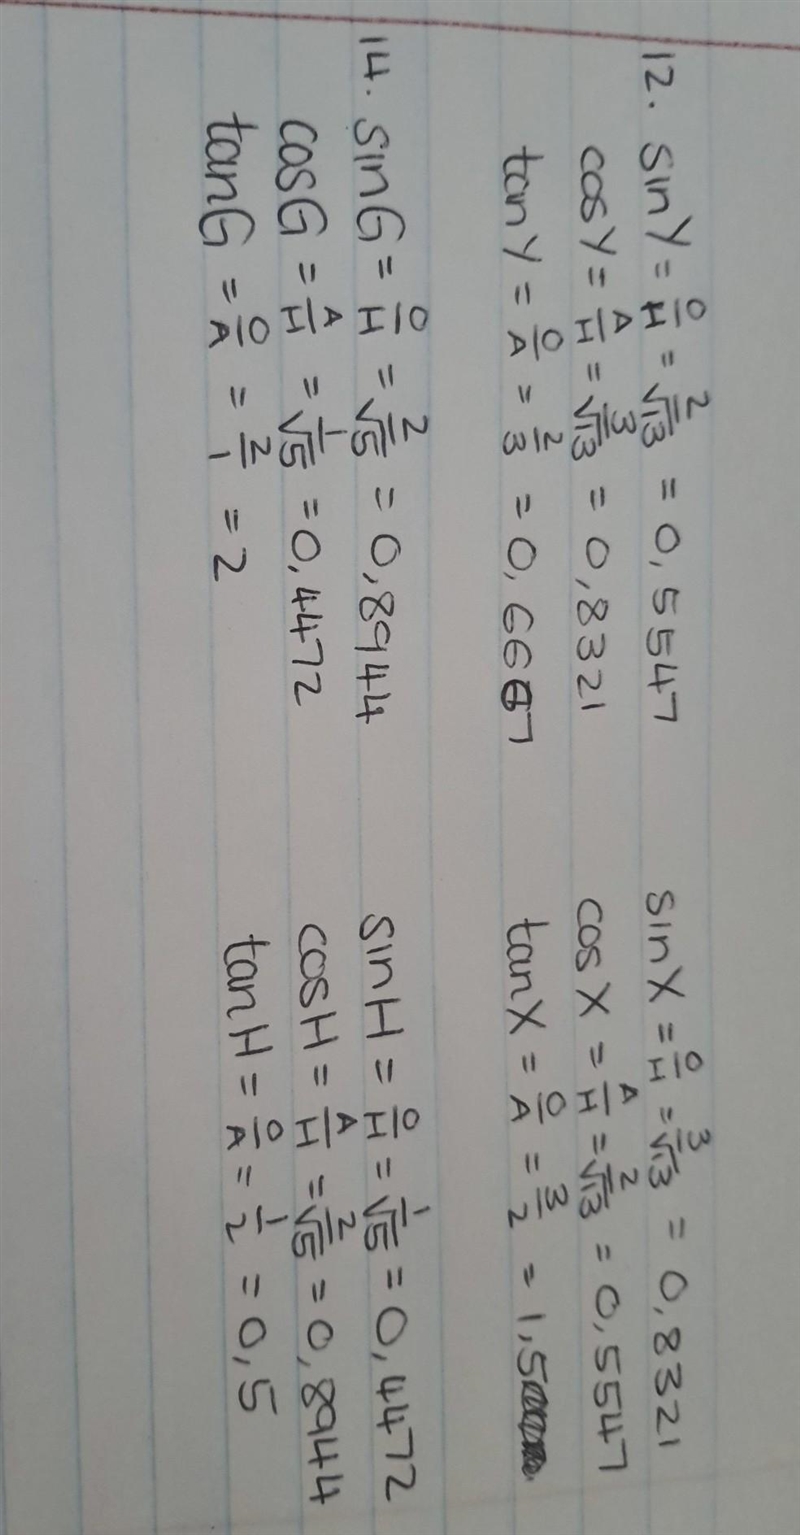 12. sinY = O/H = 2/√13 = 0,5547 sinX = O/H = 3/√13 = 0,8321
cosY = A/H = 3/√13 = 0,8321 cosX = A/H = 2/√13 = 0,5547
tanY = O/A = 2/3 = 0,6667 tanX = O/A = 3/2 = 1,5
14. sinG = O/H = 2/√5 = 0,8944 sinH = O/H = 1/√5 = 0,4472
cosG = A/H = 1/√5 = 0,4472 cosH = A/H = 2/√5 = 0,8944
tanG = O/A = 2/1 = 2 tanH = O/A = 1/2 = 0,5